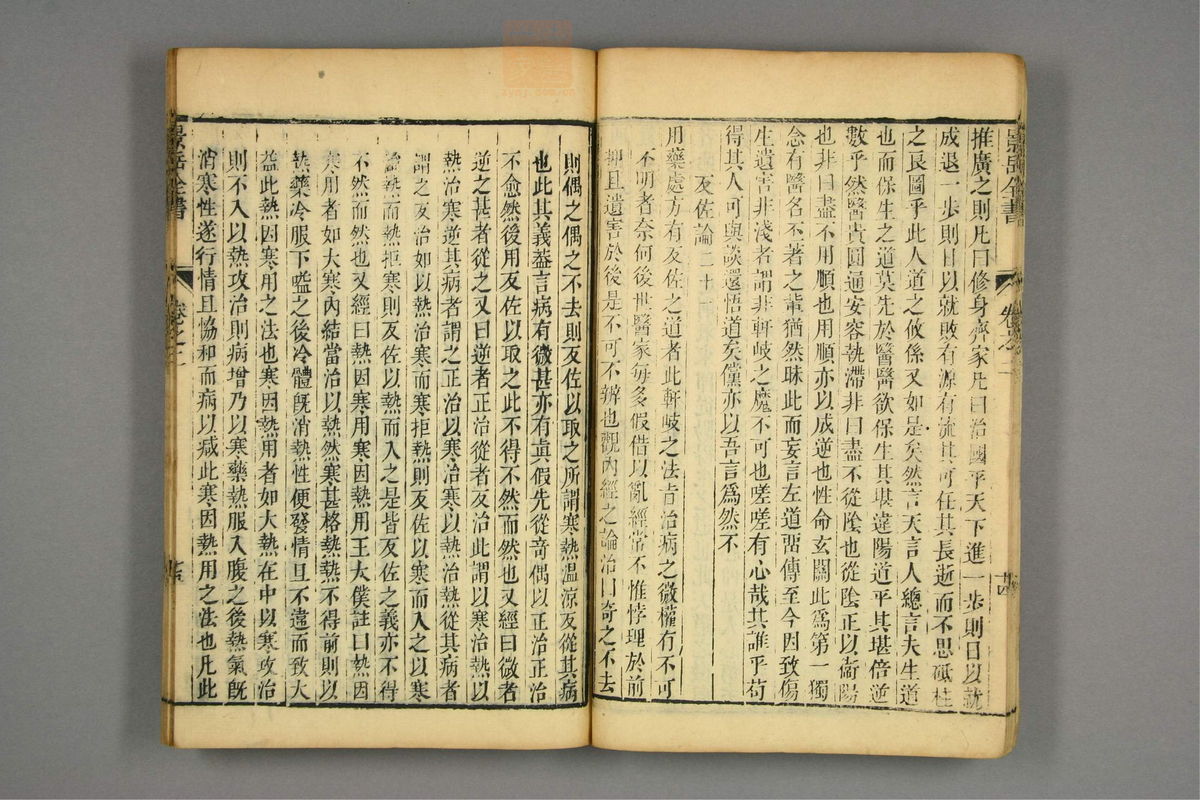 景岳全書
卷之二
十四
推廣之則凡曰修身齊家凡曰治國平天下進一步則日以就
成退一步則日以就敗有源有流其可任其長逝而不思砥柱
之良圖乎此人道之攸係又如是矣然言天言人總言夫生道
也而保生之道莫先於醫醫欲保生其堪違陽道乎其堪倍逆
數乎然醫貴圓通安容執滯非曰盡不從陰也從陰正以衛陽
也非曰盡不用順也用順亦以成逆也性命玄關此爲第一獨
念有醫名不著之輩猶然昧此而妄言左道畱傳至今因致傷
生遺害非淺者謂非軒岐之魔不可也嗟嗟有心哉其誰乎苟
得其人可與談還悟道矣儻亦以吾言爲然不
反佐論二十
用藥處方有反佐之道者此軒岐之法旨治病之微權有不可
不明者奈何後世醫家每多假借以亂經常不惟悖理於前
抑且遺害於後是不可不辨也觀內經之論治曰奇之不去
則偶之偶之不去則反佐以取之所謂寒熱温涼反從其病
也此其義葢言病有微甚亦有眞假先從奇偶以正治正治
不愈然後用反佐以取之此不得不然而然也又經曰微者
逆之甚者從之又曰逆者正治從者反治此謂以寒治熱以
熱治寒逆其病者謂之正治以寒治寒以熱治熱從其病者
謂之反治如以熱治寒而寒拒熱則反佐以寒而入之以寒
治熱而熱拒寒則反佐以熱而入之是皆反佐之義亦不得
不然而然也又經曰熱因寒用寒因熱用王太僕註曰熱因
寒用者如大寒內結當治以熱然寒甚格熱熱不得前則以
熱藥冷服下嗌之後冷體旣消熱性便發情且不違而致大
益此熱因寒用之法也寒因熱用者如大熱在中以寒攻治
則不入以熱攻治則病增乃以寒藥熱服入腹之後熱氣旣
消寒性遂行情且恊和而病以减此寒因熱用之法也凡此
景岳全書
卷之二
十五